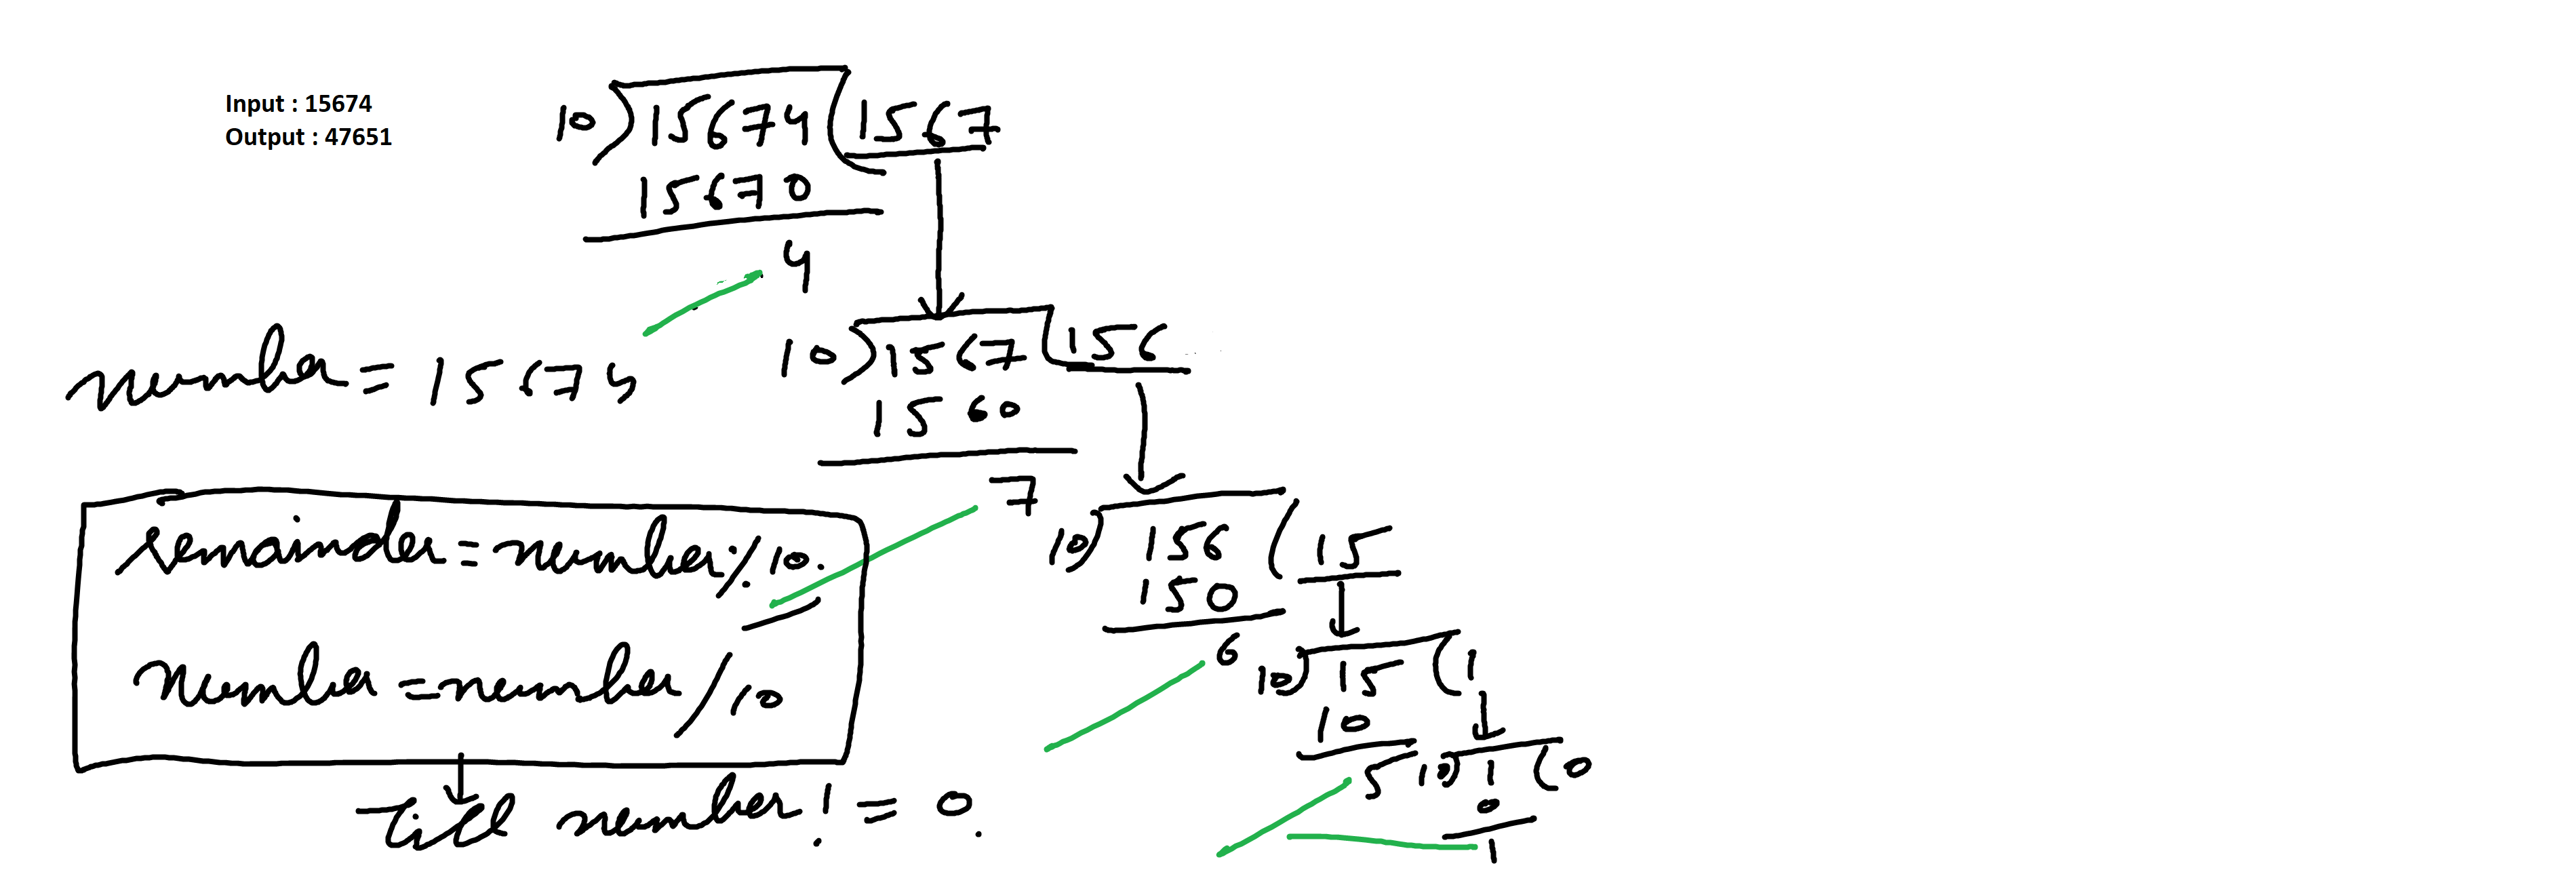 Input : 15674
Output : 47651
10) 15674 ( 1567
15670
4
number = 15674
10) 1567 ( 156
1560
7
10) 156 ( 15
150
6
10) 15 ( 1
10
5
10) 1 ( 0
0
1
remainder = number % 10.
number = number / 10
Till number != 0.